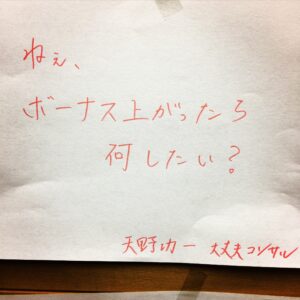 ねぇ、
ボーナス上がったら
何したい?
天野功一 大丈夫コンサル